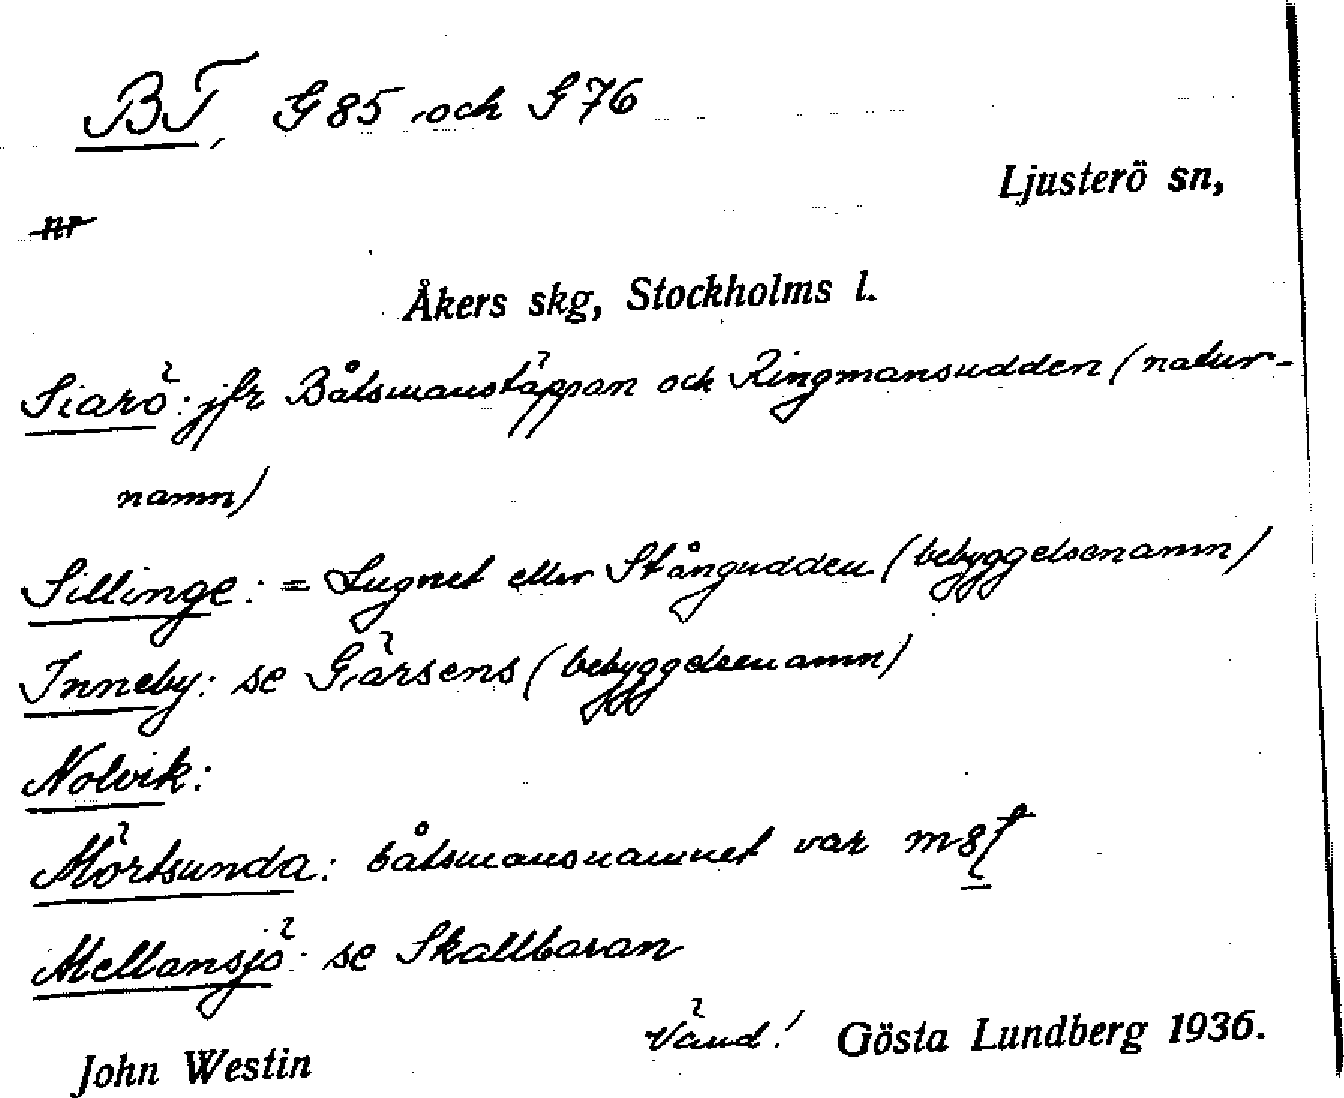 BT, G 85 och G 76
Ljusterö sn,
nr
Åkers skg, Stockholms l.
Siarö: jfr Båtsmanstäppan och Ringmansudden (natur-
namn)
Sillinge: = Lugnet eller Stångudden (bebyggelsenamn)
Inneby: se Gärsens (bebyggelsenamn)
Nolvik:
Mörtsunda: båtsmansnamnet var
Mellansjö: se Skallbaran
Vänd! Gösta Lundberg 1936.
John Westin